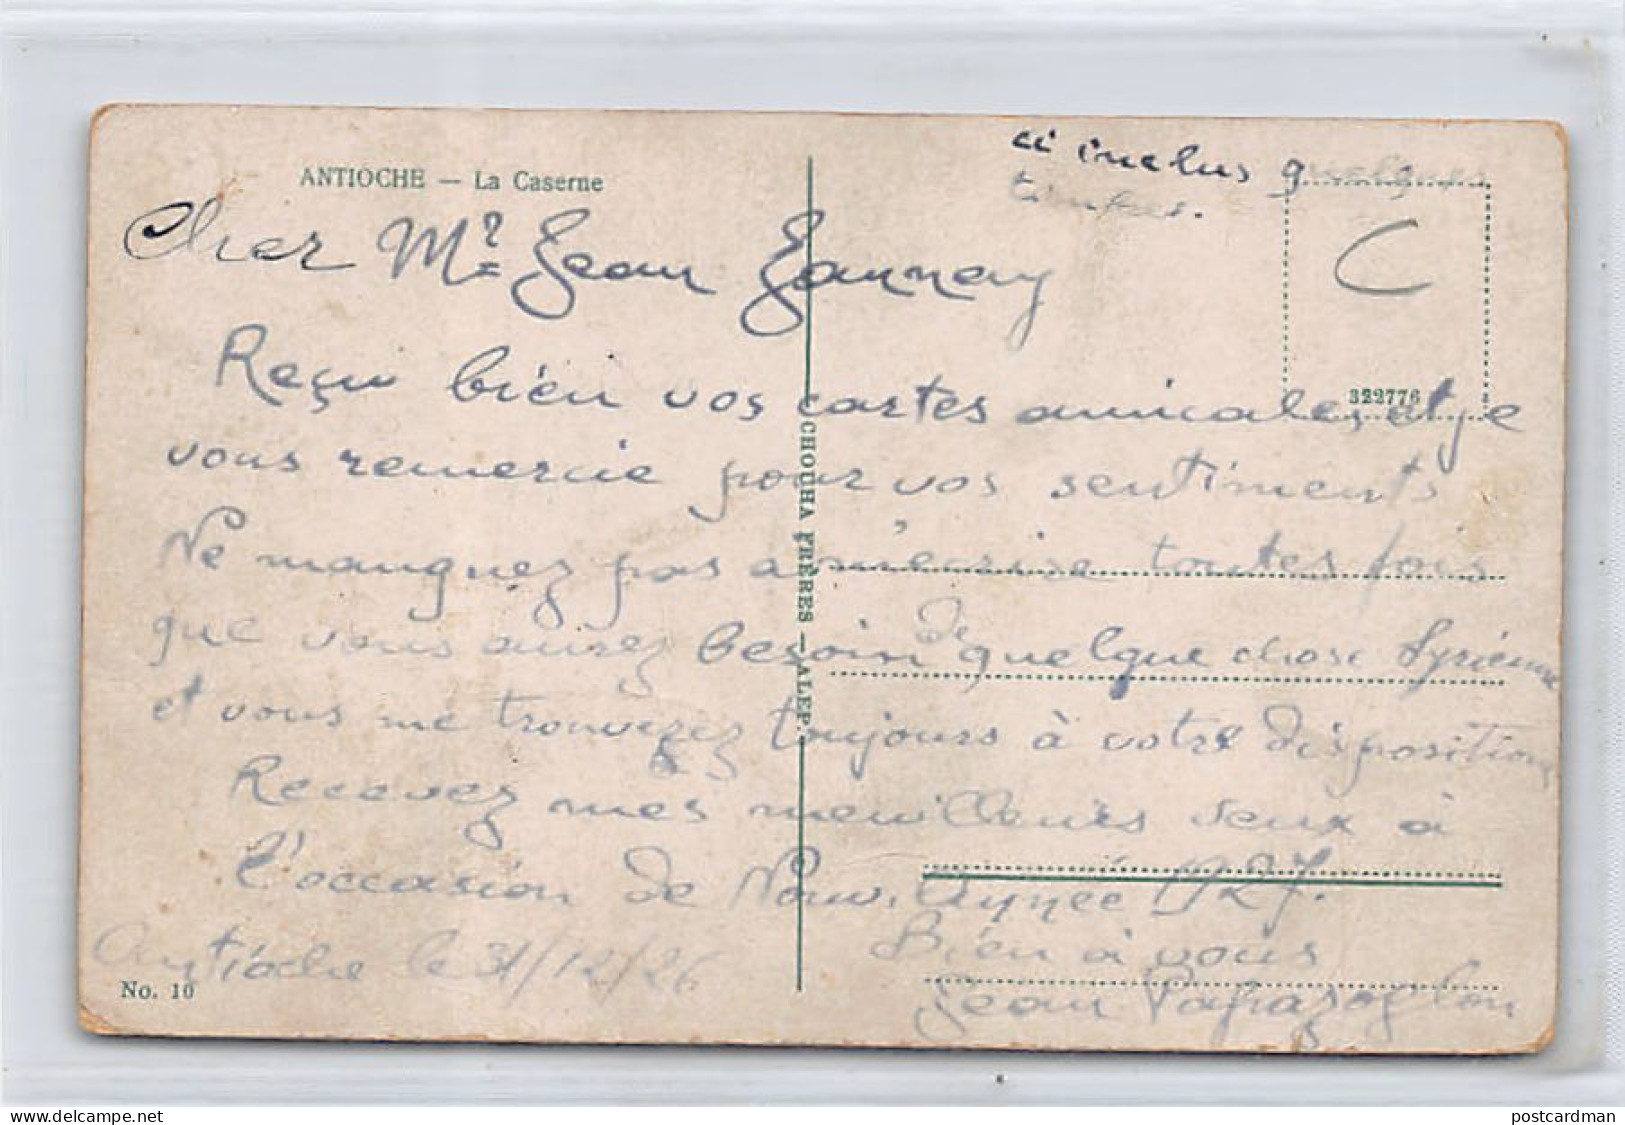 ci inclus quelques
timbres.
ANTIOCHE — La Caserne
Cher Mr Jean Jannay
Reçu bien vos cartes amicales et je
vous remercie pour vos sentiments
Ne manquez pas a m'ecrire toutes fois
que vous aurez besoin de quelque chose Syrienne
et vous me trouverez toujours à votre disposition
Recevez mes meuilleurs veux à
l'occasion de Nouv. Année 1927.
Bien à vous
Antioche le 31/12/26
Jean Papazoglou
No. 10
CHOUHA FRERES — ALEP.
C
322776
postcardman